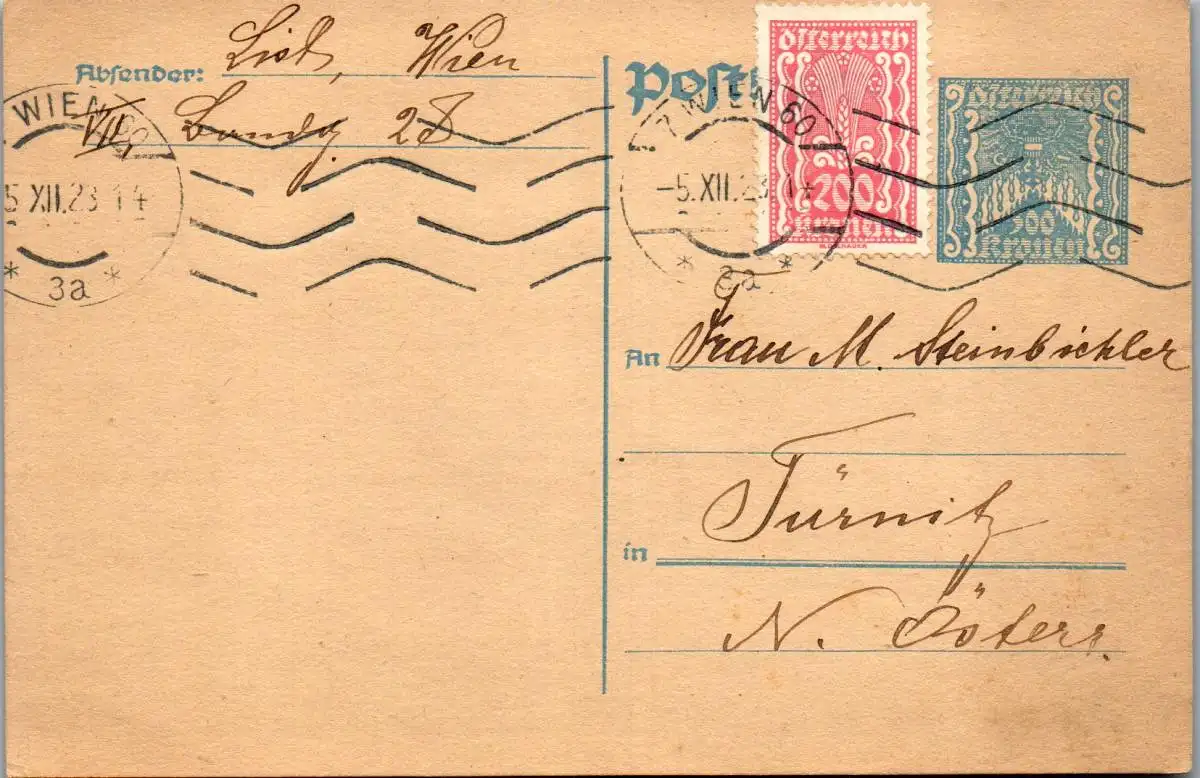 Absender: List, Wien
VII, Bandg 28
WIEN 60
5 XII.23 14
* 3a *
Postk
7 WIEN 60
-5.XII.23 14
* 3a *
Österreich
200
Kronen
Österreich
Kronen
An Frau M. Steinbichler
in Türnitz
N. Österr.